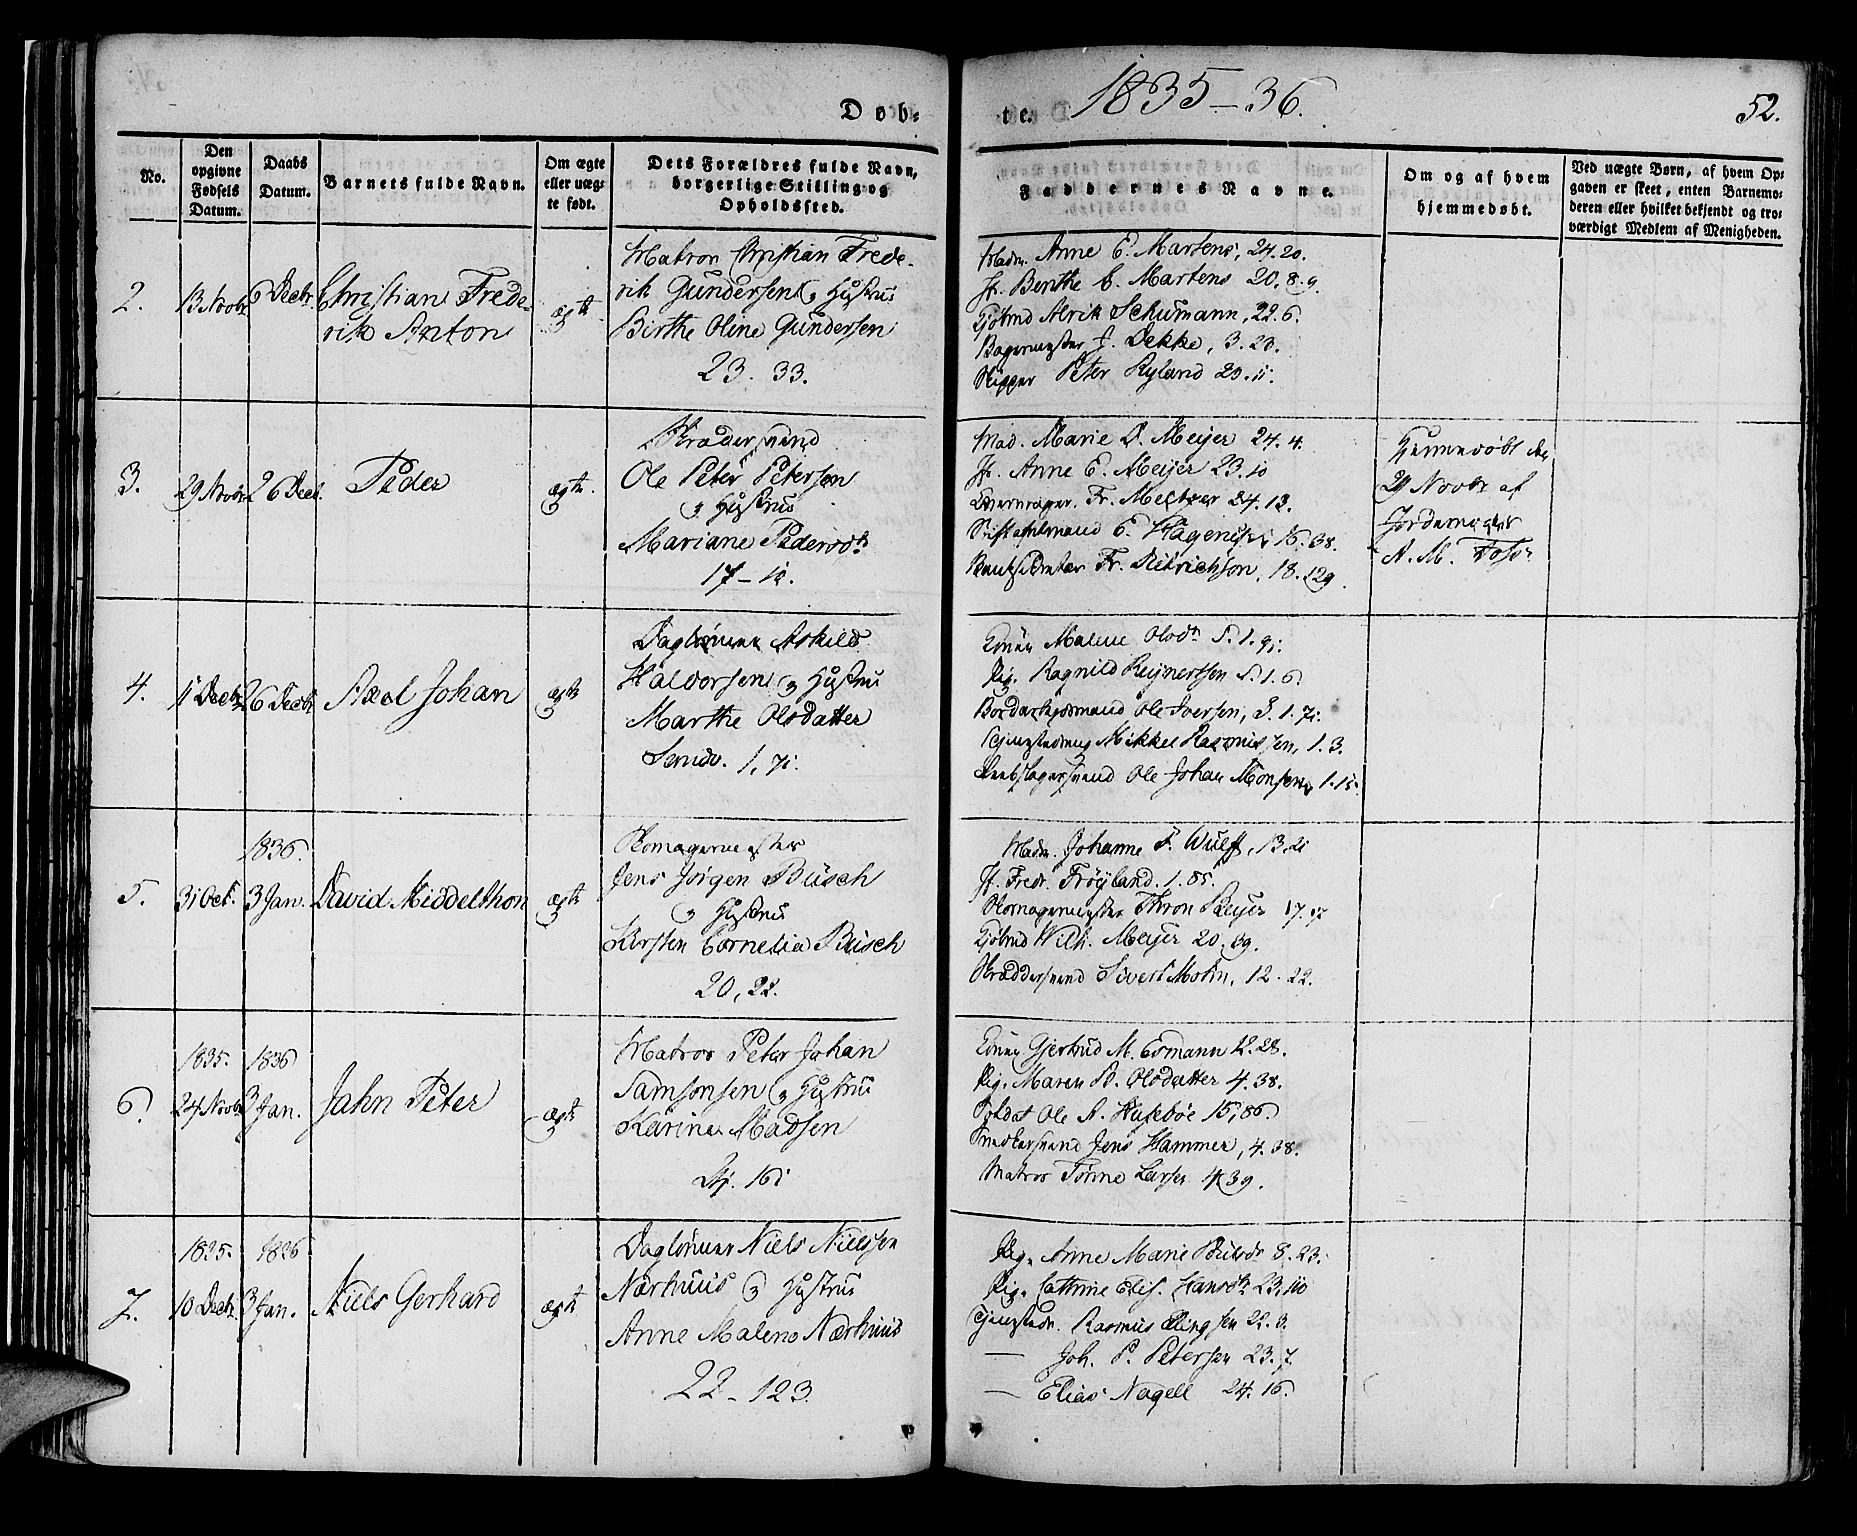 Døb-
te. 1835-36. 52.
No.
Den opgivne Fødsels Datum.
Daabs Datum.
Barnets fulde Navn.
Om ægte eller uæg-
te født.
Dets Forældres fulde Navn,
borgerlige Stilling og
Opholdssted.
Faddernes Navne.
Om og af hvem
hjemmedøbt.
Ved uægte Børn, af hvem Op-
gaven er skeet, enten Barnemo-
deren eller hvilket bekjendt og tro-
værdigt Medlem af Menigheden.
2. 13 Novbr 6 Decbr Christian Frede-
rik Anton
ægte
Matros Christian Frede-
rik Gundersen og Hustrue
Birthe Oline Gundersen
23. 33.
Madm. Anne E. Martens, 24.20.
Jf. Benthe C. Martens 20.8.9.
Kjøbmd Alrik Schumann, 22.6.
Bagermester J. Dekke, 3.23.
Skipper Peter Ryland 23.11.
3. 29 Novbr 26 Decbr. Peder
ægte.
Skrædersvend
Ole Peter Petersen
og Hustrue
Mariane Pedersdtr
17-12.
Mad. Marie D. Meyer 24.4.
Jf. Anne E. Meyer 23.10
Fr. Meltzer 24.12.
Stiftamtmand E. Hagerup 15.38.
Fr. Dietrichson, 18.129.
Hjemmedøbt den
29 Novbr af
Jordemoder
A. M. Foss.
4. 11 Decbr 26 Decbr Axel Johan
ægte
Daglønner Askild
Halvorsen og Hustrue
Marthe Olsdatter
Sandv. 1,75.
Konen Malene Olsdtr S.1.95.
Pig. Ragnild Reynertsen S.1.6.
Ole Iversen, S.1.75.
Tjenestedreng Mikkel Rasmussen, 1.3.
Reebslagersvend Ole Johan Monsen, 1.15.
1836.
5. 31 Oct. 3 Jan. David Middelthon
ægte
Skomagermester
Jens Jørgen Busch
og Hustrue
Kirsten Cornelia Busch
20, 22.
Madm. Johanne F. Wulff, 13,21
Jf. Fredr. Frøyland. 1.85.
Skomagermester Thron Reyer 17.17
Kjøbmd Wilh. Meyer 20.89.
Skræddersvend Sivert Mohn, 12.22.
1835. 1836
6. 24 Novbr 3 Jan. Jahn Peter
ægte
Matros Peter Johan
Samsonsen og Hustrue
Karine Madsen
24. 16.
Konen Gjertrud M. Esmann 12.28.
Pig. Maren B. Olsdatter 4.38.
Soldat Ole A. Husebøe 15,86.
Snedkersvend Jens Hammer, 4.38.
Matros Tønne Larsen 4.39.
1835. 1836
7. 10 Decbr. 3 Jan. Niels Gerhard
ægte
Daglønner Niels Nielsen
Nærhuus og Hustrue
Anne Malene Nærhuus
22-123.
Pig. Anne Marie 8.23.
Pig. Cathrine Elis. Hansdtr 23,110
Tjenestedr. Rasmus Ellingsen 22.3.
— Joh. P. Petersen 23.7.
— Elias Nagell 24.16.